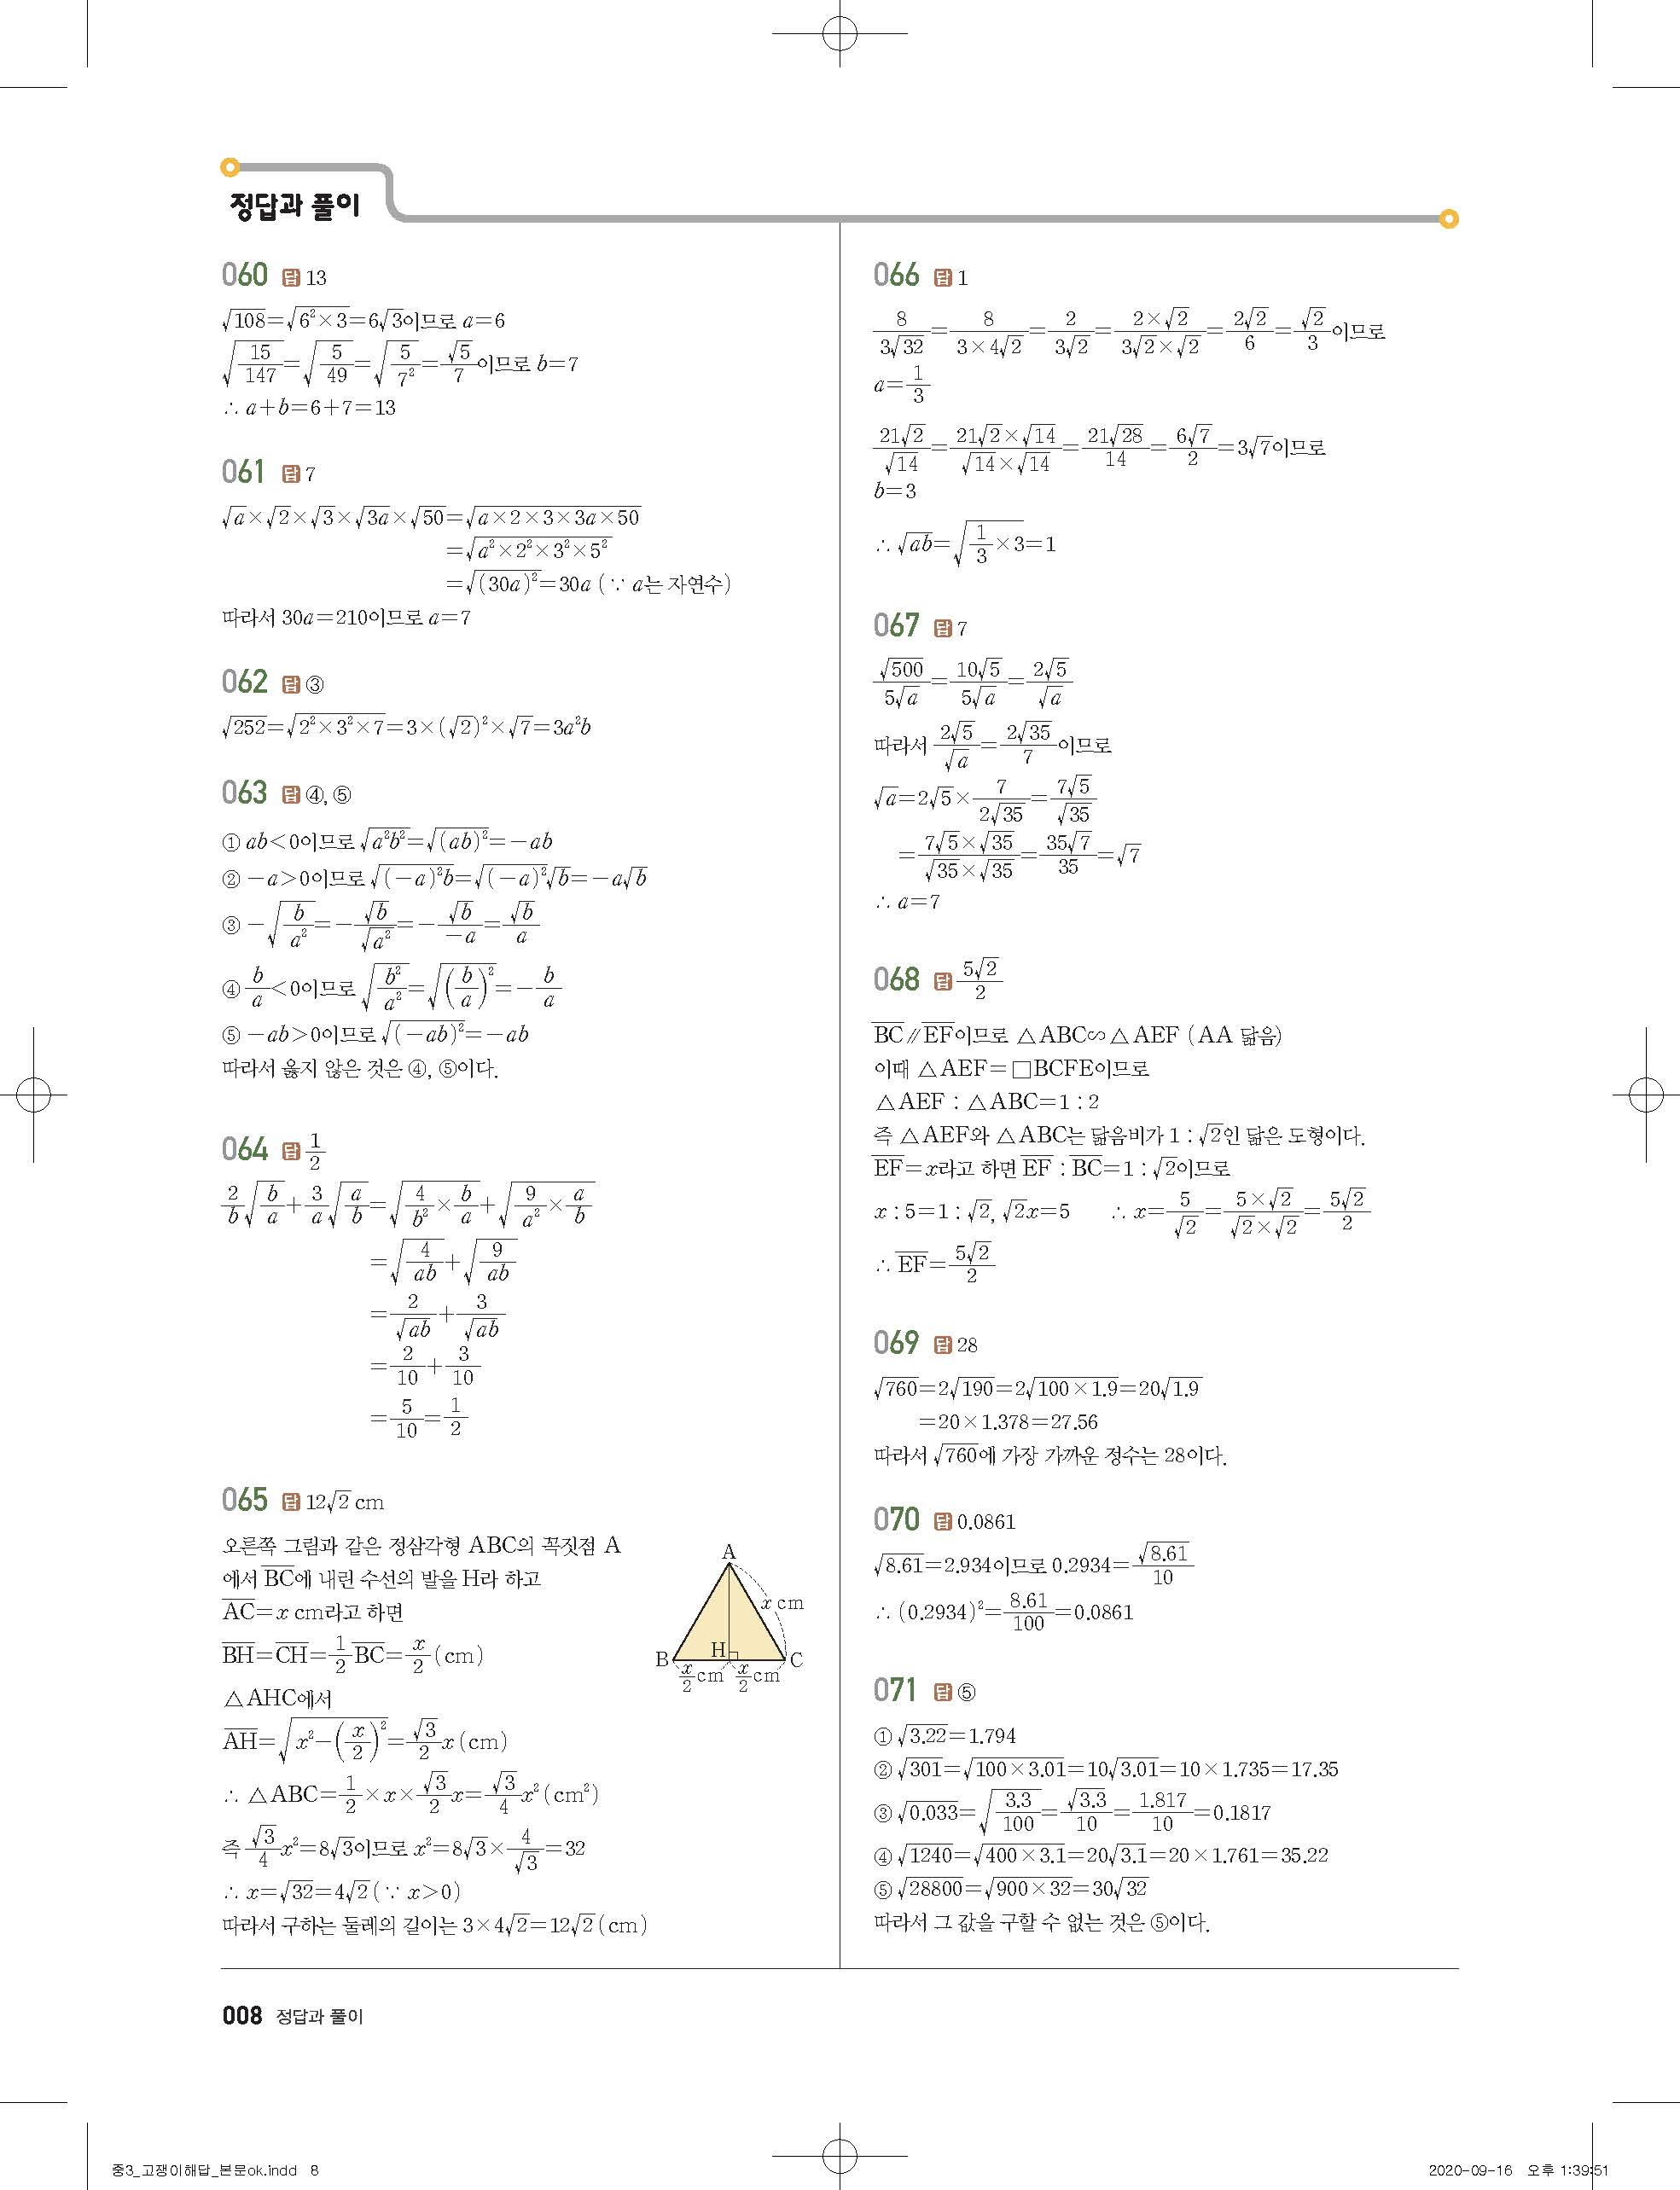 정답과 풀이
060 답 13
√108=√(6²×3)=6√3이므로 a=6
√(15/147)=√(5/49)=√(5/7²)=√5/7이므로 b=7
∴ a+b=6+7=13
061 답 7
√a×√2×√3×√(3a)×√50=√(a×2×3×3a×50)
=√(a²×2²×3²×5²)
=√((30a)²)=30a (∵ a는 자연수)
따라서 30a=210이므로 a=7
062 답 ③
√252=√(2²×3²×7)=3×(√2)²×√7=3a²b
063 답 ④, ⑤
① ab<0이므로 √(a²b²)=√((ab)²)=-ab
② -a>0이므로 √((-a)²b)=√((-a)²)√b=-a√b
③ -√(b/a²)=-√b/√(a²)=-√b/(-a)=√b/a
④ b/a<0이므로 √(b²/a²)=√((b/a)²)=-b/a
⑤ -ab>0이므로 √((-ab)²)=-ab
따라서 옳지 않은 것은 ④, ⑤이다.
064 답 1/2
2/b√(b/a)+3/a√(a/b)=√(4/b²×b/a)+√(9/a²×a/b)
=√(4/ab)+√(9/ab)
=2/√(ab)+3/√(ab)
=2/10+3/10
=5/10=1/2
065 답 12√2 cm
오른쪽 그림과 같은 정삼각형 ABC의 꼭짓점 A
에서 B̅C̅에 내린 수선의 발을 H라 하고
A̅C̅=x cm라고 하면
B̅H̅=C̅H̅=1/2 B̅C̅=x/2 (cm)
△AHC에서
A̅H̅=√(x²-(x/2)²)=√3/2 x (cm)
∴ △ABC=1/2×x×√3/2 x=√3/4 x² (cm²)
즉 √3/4 x²=8√3이므로 x²=8√3×4/√3=32
∴ x=√32=4√2 (∵ x>0)
따라서 구하는 둘레의 길이는 3×4√2=12√2 (cm)
A
x cm
B
H
C
x/2 cm
x/2 cm
066 답 1
8/(3√32)=8/(3×4√2)=2/(3√2)=(2×√2)/(3√2×√2)=2√2/6=√2/3이므로
a=1/3
21√2/√14=(21√2×√14)/(√14×√14)=21√28/14=6√7/2=3√7이므로
b=3
∴ √(ab)=√(1/3×3)=1
067 답 7
√500/(5√a)=10√5/(5√a)=2√5/√a
따라서 2√5/√a=2√35/7이므로
√a=2√5×7/(2√35)=7√5/√35
=(7√5×√35)/(√35×√35)=35√7/35=√7
∴ a=7
068 답 5√2/2
B̅C̅∥E̅F̅이므로 △ABC∽△AEF (AA 닮음)
이때 △AEF=□BCFE이므로
△AEF : △ABC=1 : 2
즉 △AEF와 △ABC는 닮음비가 1 : √2인 닮은 도형이다.
E̅F̅=x라고 하면 E̅F̅ : B̅C̅=1 : √2이므로
x : 5=1 : √2, √2x=5 ∴ x=5/√2=(5×√2)/(√2×√2)=5√2/2
∴ E̅F̅=5√2/2
069 답 28
√760=2√190=2√(100×1.9)=20√1.9
=20×1.378=27.56
따라서 √760에 가장 가까운 정수는 28이다.
070 답 0.0861
√8.61=2.934이므로 0.2934=√8.61/10
∴ (0.2934)²=8.61/100=0.0861
071 답 ⑤
① √3.22=1.794
② √301=√(100×3.01)=10√3.01=10×1.735=17.35
③ √0.033=√(3.3/100)=√3.3/10=1.817/10=0.1817
④ √1240=√(400×3.1)=20√3.1=20×1.761=35.22
⑤ √28800=√(900×32)=30√32
따라서 그 값을 구할 수 없는 것은 ⑤이다.
008 정답과 풀이
중3_고쟁이해답_본문ok.indd 8
2020-09-16 오후 1:39:51